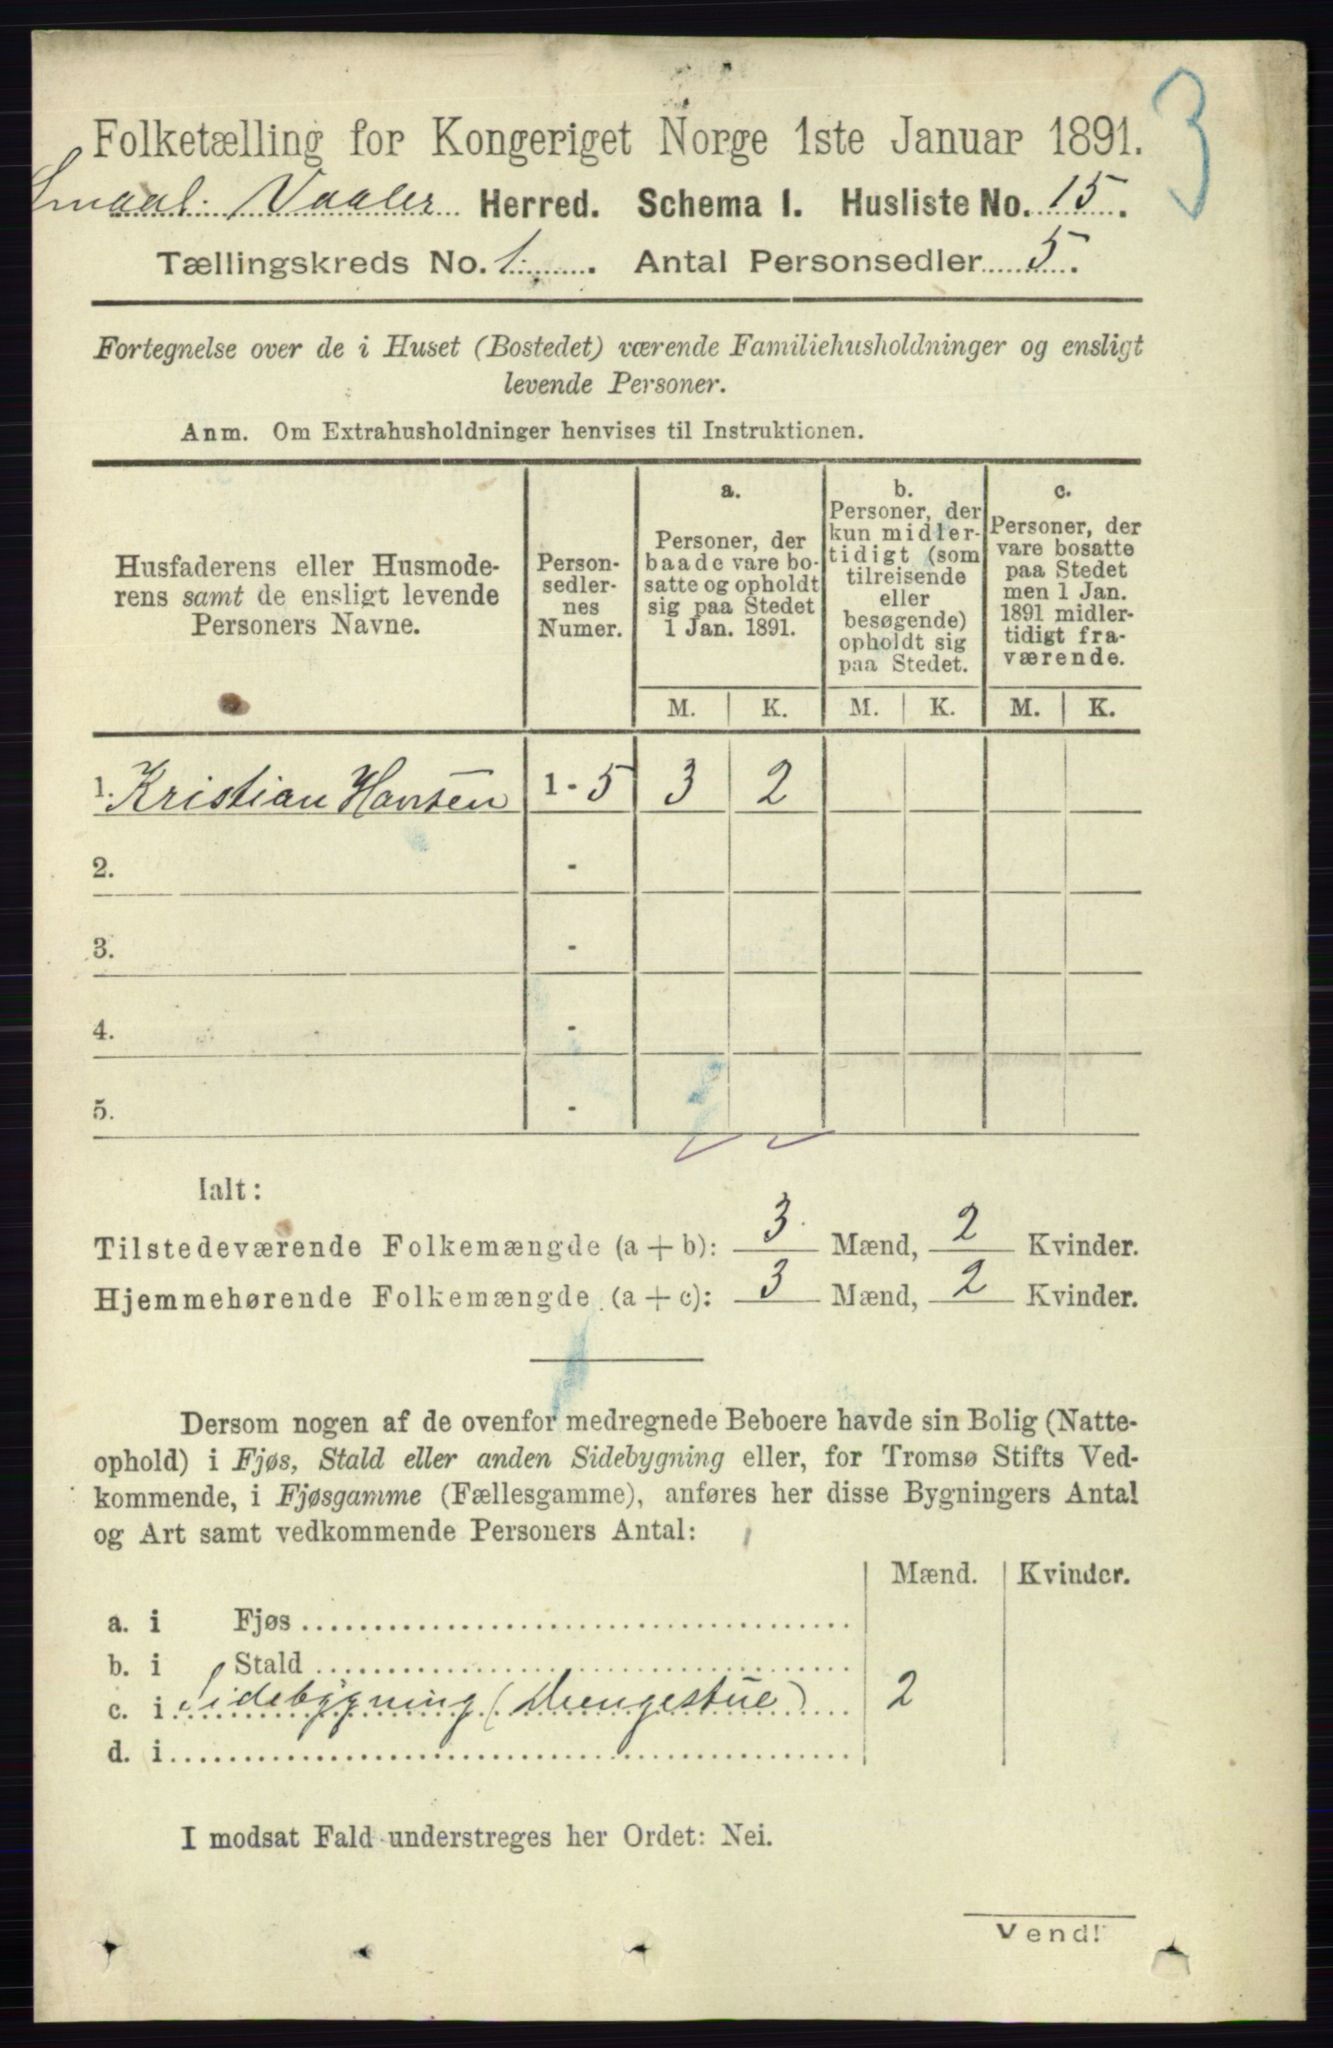 3
Folketælling for Kongeriget Norge 1ste Januar 1891.
Smaal. Vaaler Herred. Schema I. Husliste No. 15.
Tællingskreds No. 1. Antal Personsedler 5.
Fortegnelse over de i Huset (Bostedet) værende Familiehusholdninger og ensligt
levende Personer.
Anm. Om Extrahusholdninger henvises til Instruktionen.
Husfaderens eller Husmode-
rens samt de ensligt levende
Personers Navne.
Person-
sedler-
nes
Numer.
a.
Personer, der
baade vare bo-
satte og opholdt
sig paa Stedet
1 Jan. 1891.
b.
Personer, der
kun midler-
tidigt (som
tilreisende
eller
besøgende)
opholdt sig
paa Stedet.
c.
Personer, der
vare bosatte
paa Stedet
men 1 Jan.
1891 midler-
tidigt fra-
værende.
M. K. M. K. M. K.
1. Kristian Hansen 1 - 5 3 2
2. -
3. -
4. -
5. -
Ialt:
Tilstedeværende Folkemængde (a + b): 3 Mænd, 2 Kvinder.
Hjemmehørende Folkemængde (a + c): 3 Mænd, 2 Kvinder.
Dersom nogen af de ovenfor medregnede Beboere havde sin Bolig (Natte-
ophold) i Fjøs, Stald eller anden Sidebygning eller, for Tromsø Stifts Ved-
kommende, i Fjøsgamme (Fællesgamme), anføres her disse Bygningers Antal
og Art samt vedkommende Personers Antal:
Mænd. Kvinder.
a. i Fjøs
b. i Stald
c. i Sidebygning (Drengestue) 2
d. i
I modsat Fald understreges her Ordet: Nei.
Vend!